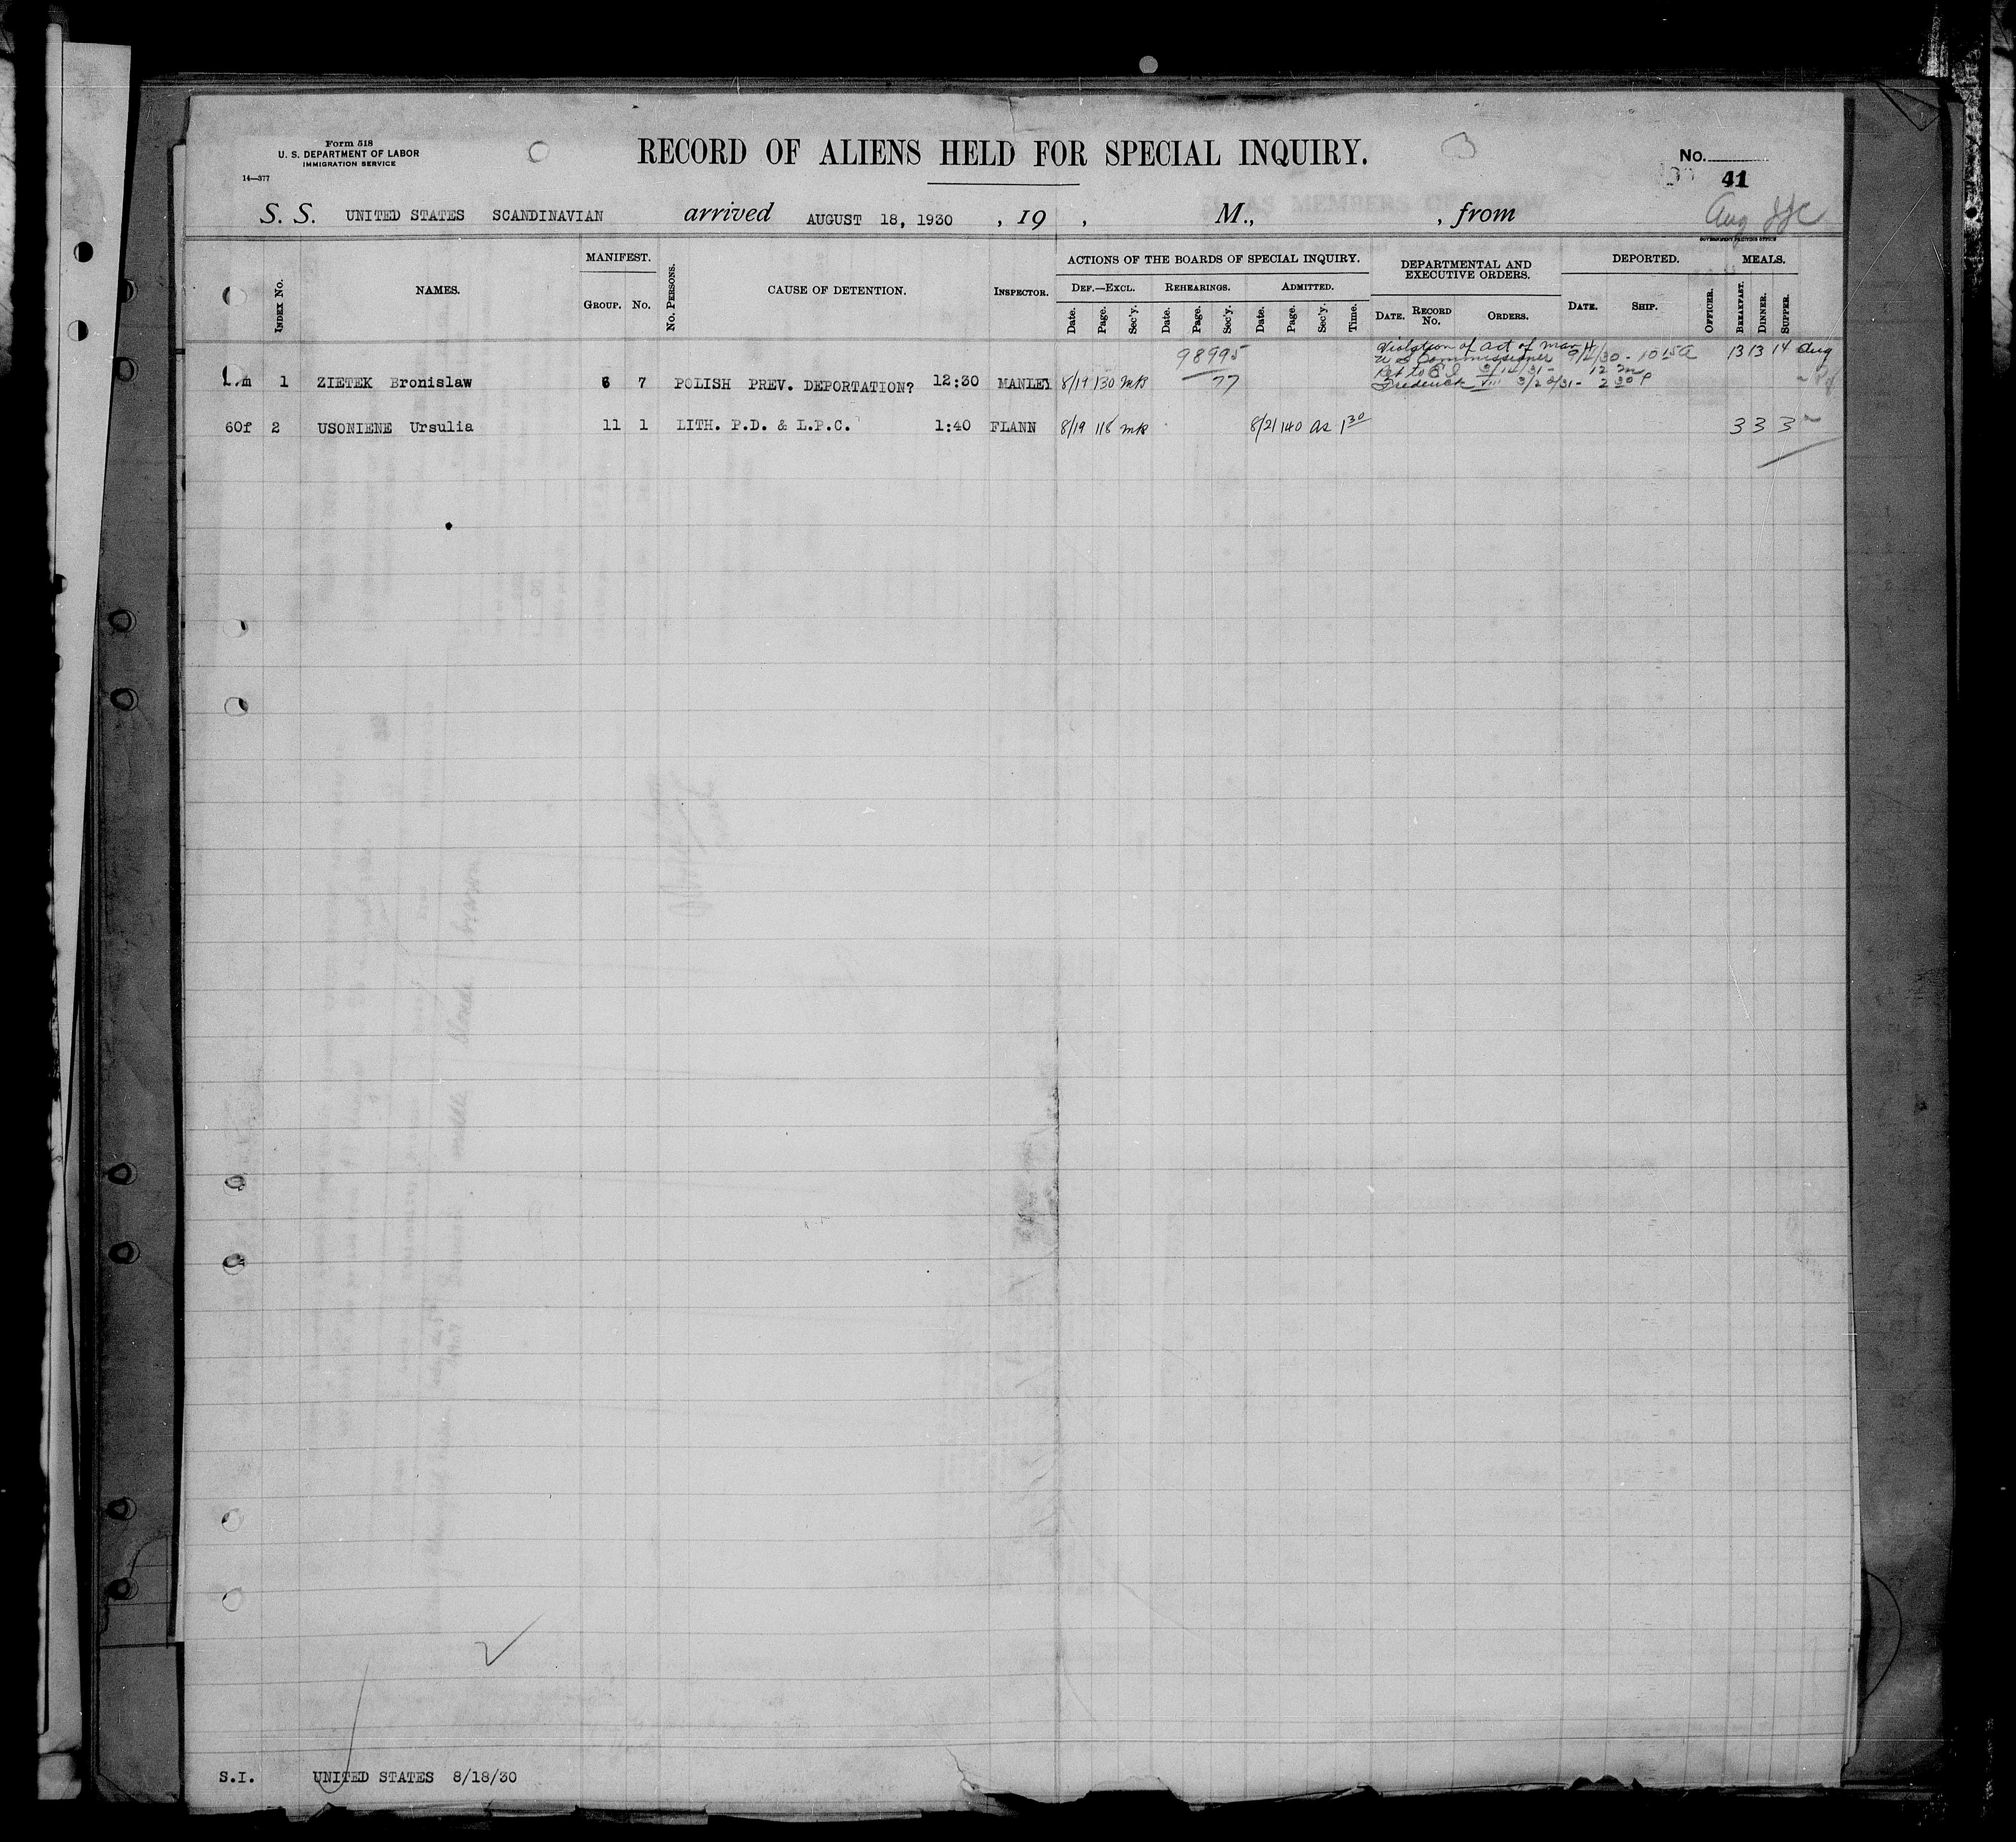 Form 518
U. S. DEPARTMENT OF LABOR
IMMIGRATION SERVICE
14—377
RECORD OF ALIENS HELD FOR SPECIAL INQUIRY.
No.
41
S. S. UNITED STATES SCANDINAVIAN arrived AUGUST 18, 1930 , 19 , M., , from
Aug
GOVERNMENT PRINTING OFFICE
INDEX No.
NAMES.
MANIFEST.
GROUP. No.
No. PERSONS.
CAUSE OF DETENTION.
INSPECTOR.
ACTIONS OF THE BOARDS OF SPECIAL INQUIRY.
DEF.—EXCL. REHEARINGS. ADMITTED.
Date. Page. Sec'y. Date. Page. Sec'y. Date. Page. Sec'y. Time.
DEPARTMENTAL AND
EXECUTIVE ORDERS.
DATE. RECORD No. ORDERS.
DEPORTED.
DATE. SHIP. OFFICER.
MEALS.
BREAKFAST. DINNER. SUPPER.
98995
77
Violation of Act of Mar 4
U S Commissioner 9/4/30 - 10 15 A
Ret to E I 3/14/31 - 12 m
Frederick VIII 3/28/31 - 2 30 P
m 1 ZIETEK Bronislaw 6 7 POLISH PREV. DEPORTATION? 12:30 MANLEY 8/19 130 MB 13 13 14 Aug
60f 2 USONIENE Ursulia 11 1 LITH. P.D. & L.P.C. 1:40 FLANN 8/19 118 MB 8/21 140 As 1 30 3 3 3
S.I. UNITED STATES 8/18/30